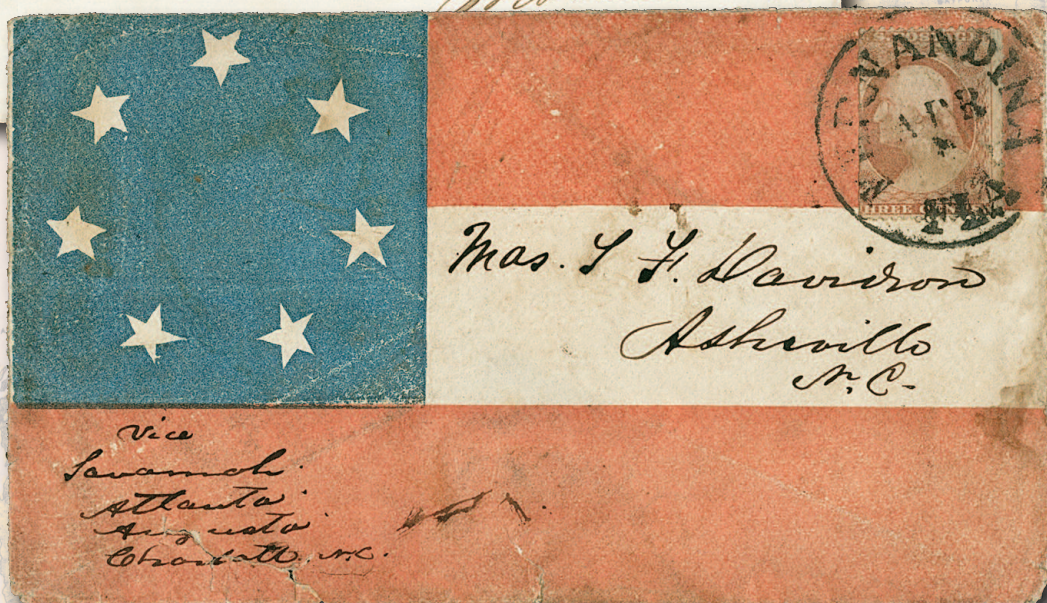 FERNANDINA
APR
4
FLA
THREE CENTS
Mrs. S F. Davidson
Asheville
N. C.
Vice
Savannah.
Atlanta
Augusta
Charlott N.C.